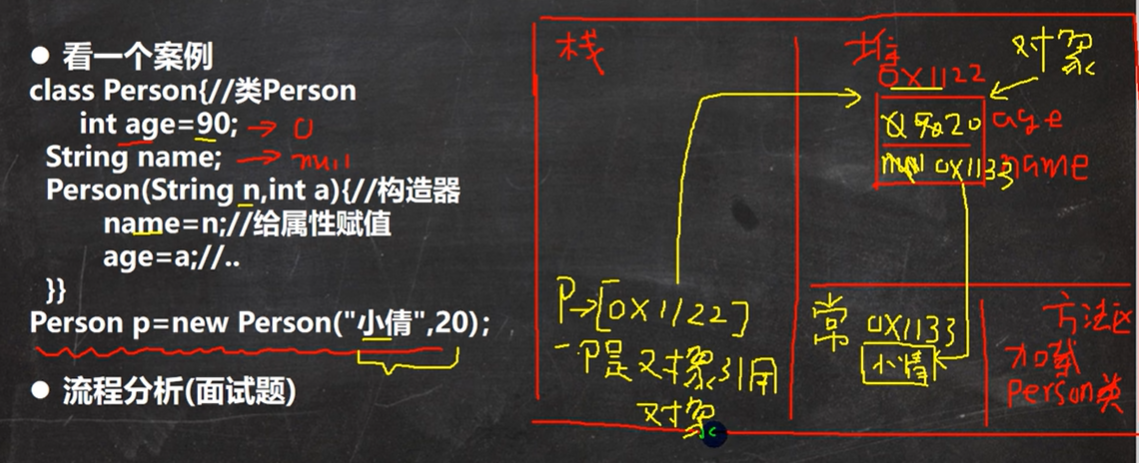 ● 看一个案例
class Person{//类Person
int age=90; → 0
String name; → null
Person(String n,int a){//构造器
name=n;//给属性赋值
age=a;//..
}}
Person p=new Person("小倩",20);
● 流程分析(面试题)
栈
P→[0X1122]
P是对象引用
对象
堆
0X1122
对象
90 20 age
null 0X1133 name
常
0X1133
小倩
方法区
加载
Person类